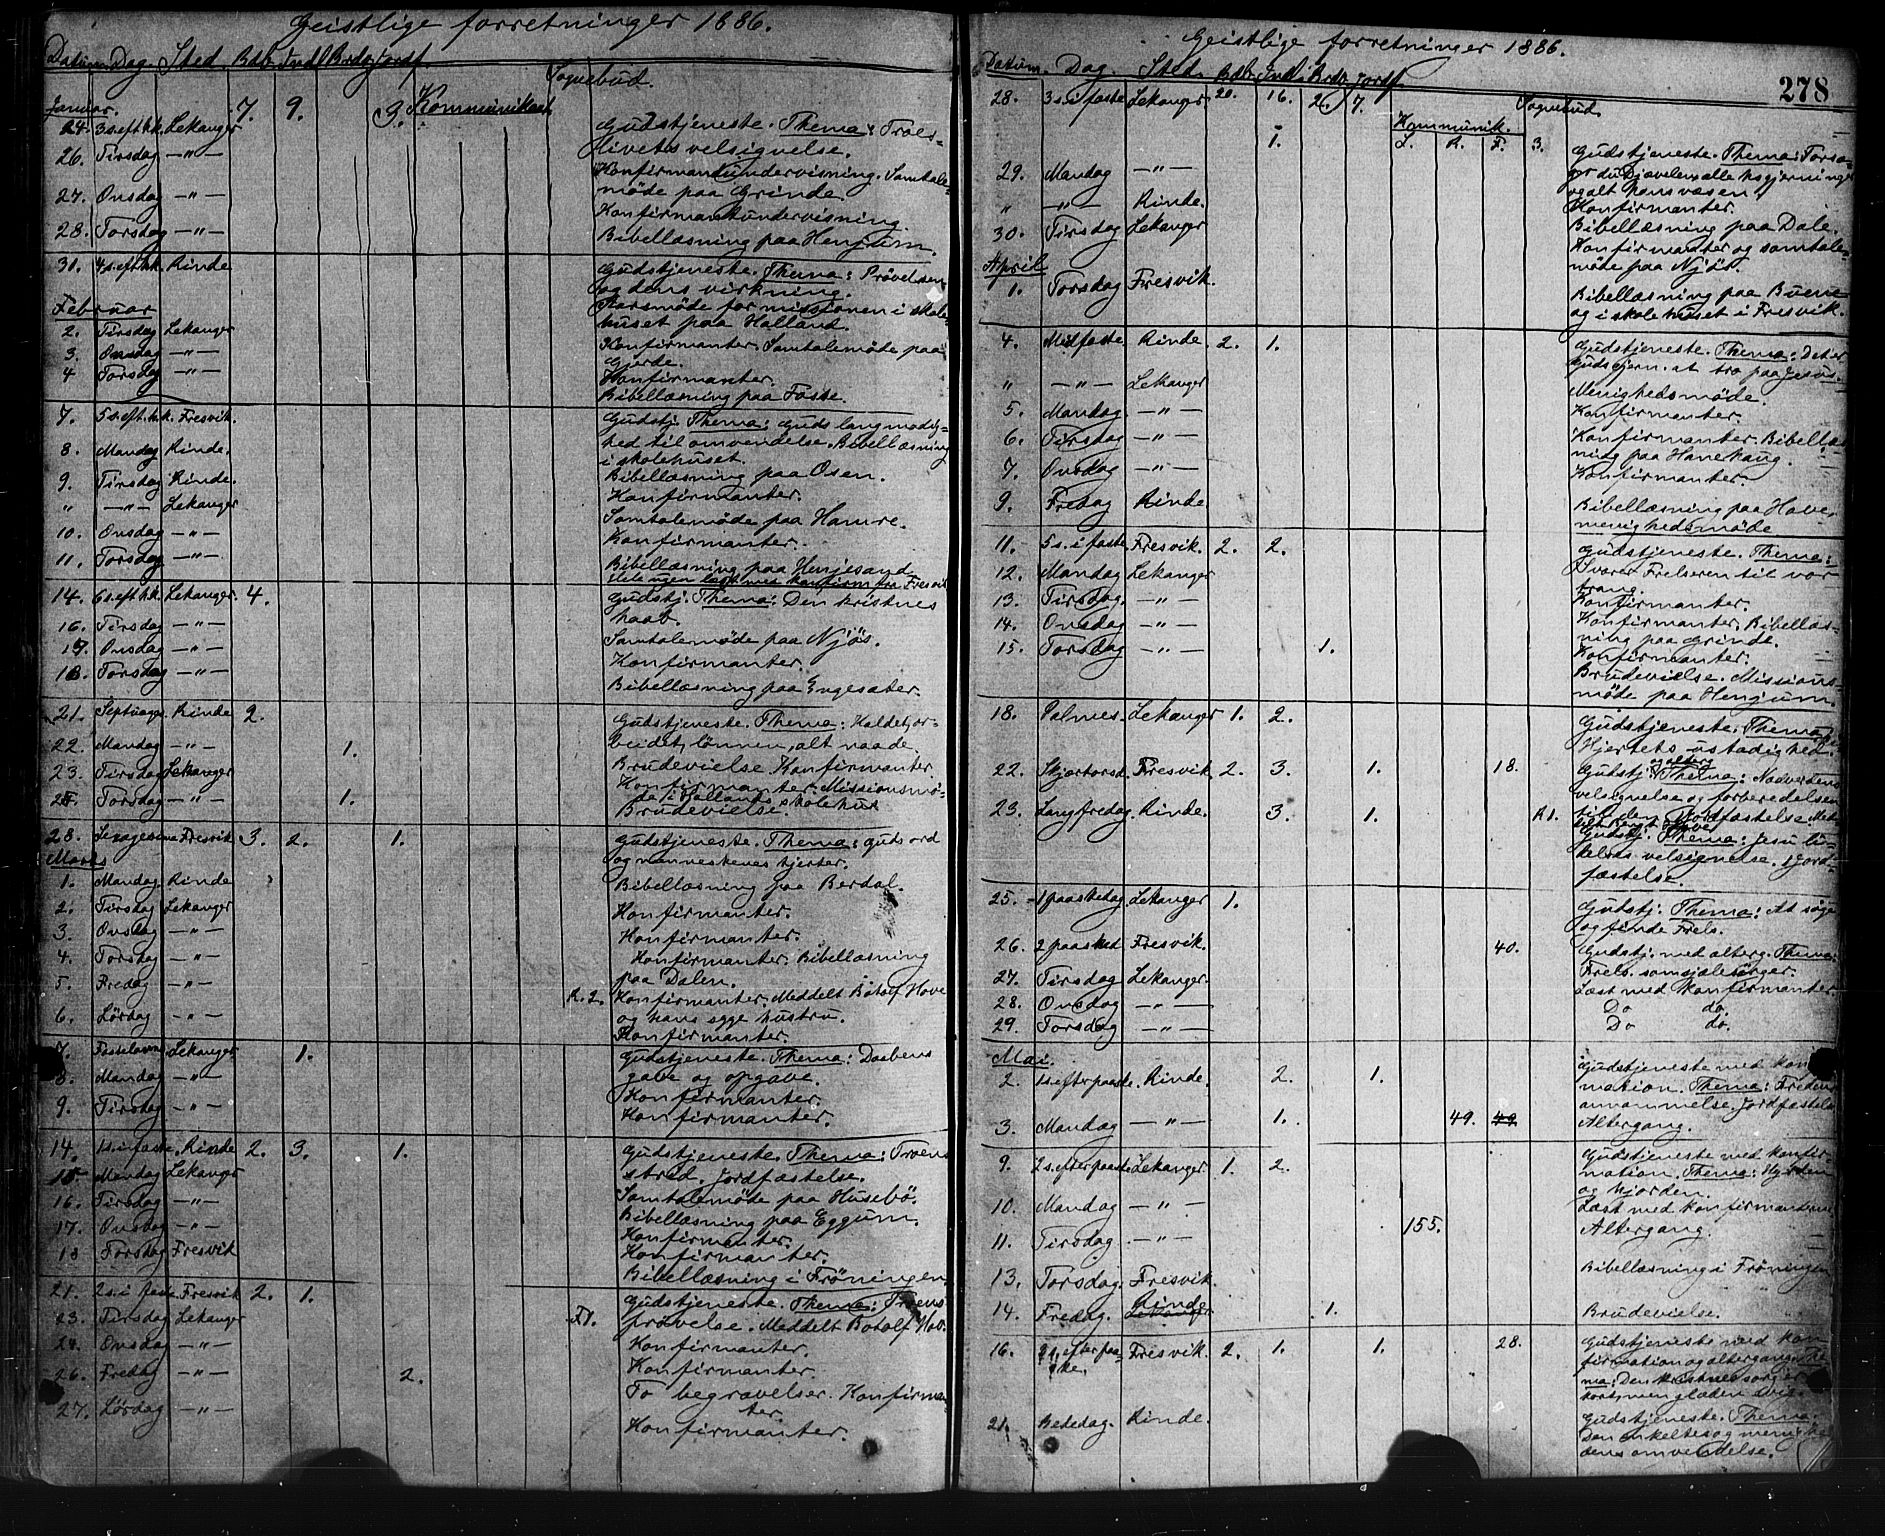 Geistlige forretninger 1886.
Datum Dag. Sted. Bdb. Indl. Brdv. Jordf. Sognebud.
Januar. 7. 9. 3. Kommunikant
24. 3 s.eft.h.k. Lekanger Gudstjeneste. Thema: Troes-
livets velsignelse.
26. Tirsdag —"— Konfirmantundervisning. Samtale-
møde paa Grinde
27. Onsdag —"— Konfirmantundervisning.
28. Torsdag —"— Bibellæsning paa Henjum.
31. 4 s.eft.h.k. Rinde Gudstjeneste. Thema: Prøvelsen
og dens virkning.
Februar Aarsmøde for missionen i skole-
huset paa Halland.
2. Tirsdag Lekanger
3. Onsdag —"— Konfirmanter. Samtalemøde paa
Gjerde.
4 Torsdag —"— Konfirmanter.
Bibellæsning paa Foste.
7. 5 s.eft.h.k. Fresvik. Gudstj. Thema: Guds langmodig-
hed til omvendelse. Bibellæsning
i skolehuset
8. Mandag Rinde. Bibellæsning paa Osen.
9. Tirsdag Rinde. Konfirmanter.
" —"— Lekanger Samtalemøde paa Hamre.
10. Onsdag —"— Konfirmanter.
11. Torsdag —"— Bibellæsning paa Henjesand
Hele ugen læst med konfirm. fra Fresvik
14. 6 s.eft.h.k. Lekanger. 4. Gudstj. Thema: Den kristnes
haab.
16. Tirsdag —"— Samtalemøde paa Njøs.
17. Onsdag —"— Konfirmanter.
18. Torsdag —"— Bibellæsning paa Engesæter.
21. Septuag. Rinde 2. Gudstjeneste. Thema: Kaldet, ar-
beidet, lønnen, alt naade.
22. Mandag —"— 1. Brudevielse Konfirmanter
23. Tirsdag Lekanger Konfirmanter. Missionsmø-
de i Hallands skolehus
25. Torsdag —"— 1. Brudevielse.
28. Sexagesima Fresvik 3. 2. 1. Gudstjeneste. Thema: Guds ord
og menneskenes hjerter.
Marts
1. Mandag. Rinde Bibellæsning paa Berdal.
2. Tirsdag Lekanger Konfirmanter.
3. Onsdag —"— Konfirmanter.
4. Torsdag —"— Konfirmanter. Bibellæsning
paa Dalen.
5. Fredag —"— R. 2. Konfirmanter. Meddelt Botolf Hove
og hans egge hustru.
6. Lørdag —"— Konfirmanter.
7. Fastelavns Lekanger 1. Gudstjeneste. Thema: Daabens
gave og opgave.
8. Mandag —"— Konfirmanter.
9. Tirsdag —"— Konfirmanter.
14. 1 s. i faste. Rinde 2. 3. 1. Gudstjeneste. Thema: Troens
strid. Jordfæstelse.
15 Mandag Lekanger Samtalemøde paa Husebø.
16. Tirsdag —"— Bibellæsning paa Eggum.
17. Onsdag —"— Konfirmanter.
18 Torsdag Fresvik Konfirmanter.
Bibellæsning i Frøningen
21. 2 s. i faste Fresvik 2. 1. Gudstjeneste. Thema: Troens
23. Tirsdag Lekanger F1. prøvelse. Meddelt Botolf Hov.
24. Onsdag —"— Konfirmanter.
26. Fredag —"— 2. Konfirmanter.
To begravelser. Konfirman-
ter.
27. Lørdag —"— Konfirmanter.
Geistlige forretninger 1886.
278
Datum. Dag. Sted. Bdb. Indl. Brdv. Jordf. Sognebud.
28. 3 s. i faste Lekanger 20. 16. 2. 7. Kommunik.
1. L. R. F. 3. Gudstjeneste. Thema: Forsa-
29. Mandag —"— ger du Djævelen, alle hs gjerninger
og alt hans væsen?
" —"— Rinde. Konfirmanter.
30. Tirsdag Lekanger Bibellæsning paa Dale.
Konfirmanter og samtale-
møde paa Njøs.
April
1. Torsdag Fresvik. Bibellæsning paa Buene
og i skolehuset i Fresvik.
4. Midfaste. Rinde. 2. 1. Gudstjeneste. Thema: Det er
Guds gjern. at tro paa Jesus.
" —"— Lekanger Menighedsmøde.
5. Mandag —"— Konfirmanter.
6. Tirsdag —"— Konfirmanter. Bibellæs-
ning paa Hanehaug.
7. Onsdag —"— Konfirmanter.
9. Fredag Rinde Bibellæsning paa Hove,
menighedsmøde
11. 5 s. i faste Fresvik. 2. 2. Gudstjeneste. Thema:
Svarer Frelseren til vor
trang.
12. Mandag Lekanger Konfirmanter.
13. Tirsdag. —"— Konfirmanter. Bibellæs-
ning paa Grinde.
14. Onsdag —"— Konfirmanter.
15. Torsdag —"— 1. Brudevielse. Missions-
møde paa Henjum.
18. Palmes. Lekanger 1. 2. Gudstjeneste. Thema:
Hjertets ustadighed.
22. Skjærtorsd. Fresvik 2. 3. 1. 18. Gudstj. og alterg. Thema: Nadverdens
velsignelse og forberedelsen
23. Langfredag. Rinde. 3. 1. R1. til den. Jordfæstelse. Med-
delt Bengt Hove
Gudstj. Thema: Jesu li-
delses velsignelse. 1 jord-
fæstelse.
25. 1 paaskedag. Lekanger 1. Gudstj. Thema: At søge
og finde Frels.
26. 2 paasked. Fresvik. 40. Gudstj. med alterg. Thema:
Frels. som sjælesørger.
27. Tirsdag Lekanger. Læst med konfirmanter.
28. Onsdag —"— Do do.
29. Torsdag —"— Do do.
Mai.
2. 1 s. efter paaske. Rinde. 2. 1. Gudstjeneste med konfir-
mation. Thema: Fredens
annammelse. Jordfæstelse
3. Mandag —"— 1. 49. 49 Altergang.
9. 2 s. efter paaske Lekanger 1. 2. Gudstjeneste med konfir-
mation. Thema: Hyrden
og hjorden.
10. Mandag —"— Læst med konfirmanterne
11. Tirsdag. —"— 155. Altergang.
13. Torsdag. Fresvik. Bibellæsning i Frøningen
14. Fredag. Lekanger Rinde 1. Brudevielse.
16. 3 s. efter paa-
ske. Fresvik. 2. 1. 1. 28. Gudstjeneste med kon-
firmation og altergang. The-
ma: Den kristnes sorg er
kort, men glæden evig.
21. Bededag. Rinde. Gudstjeneste. Thema:
Den enkeltes og menighe-
dens omvendelse.